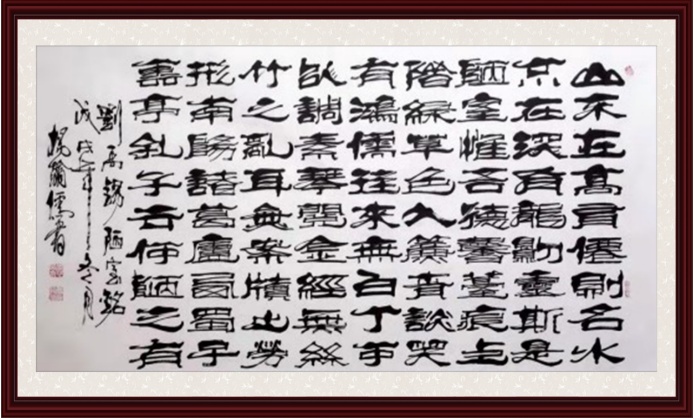 山不在高有僊則名水
不在深有龍則靈斯是
陋室惟吾德馨苔痕上
階綠草色入簾青談笑
有鴻儒往來無白丁可
以調素琴閱金經無絲
竹之亂耳無案牘之勞
形南陽諸葛廬西蜀子
雲亭孔子云何陋之有
劉禹錫陋室銘
戊戌年之冬月
楊爾儒書